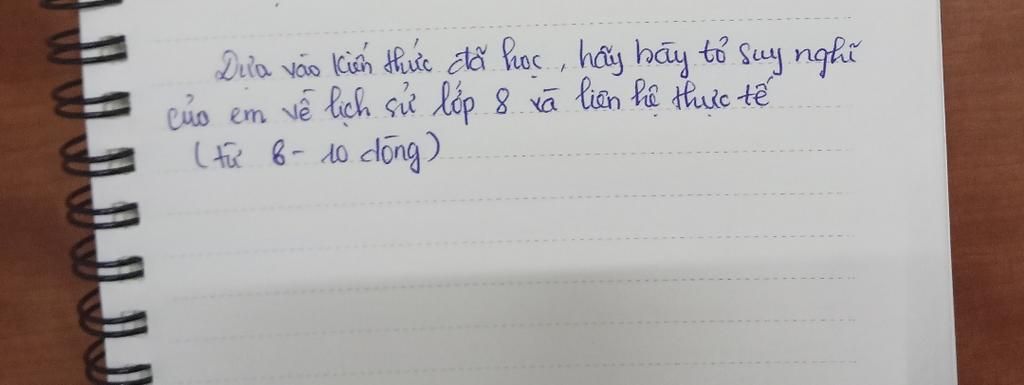 Dựa vào kiến thức đã học, hãy bày tỏ suy nghĩ
của em về lịch sử lớp 8 và liên hệ thực tế
(từ 8 - 10 dòng)